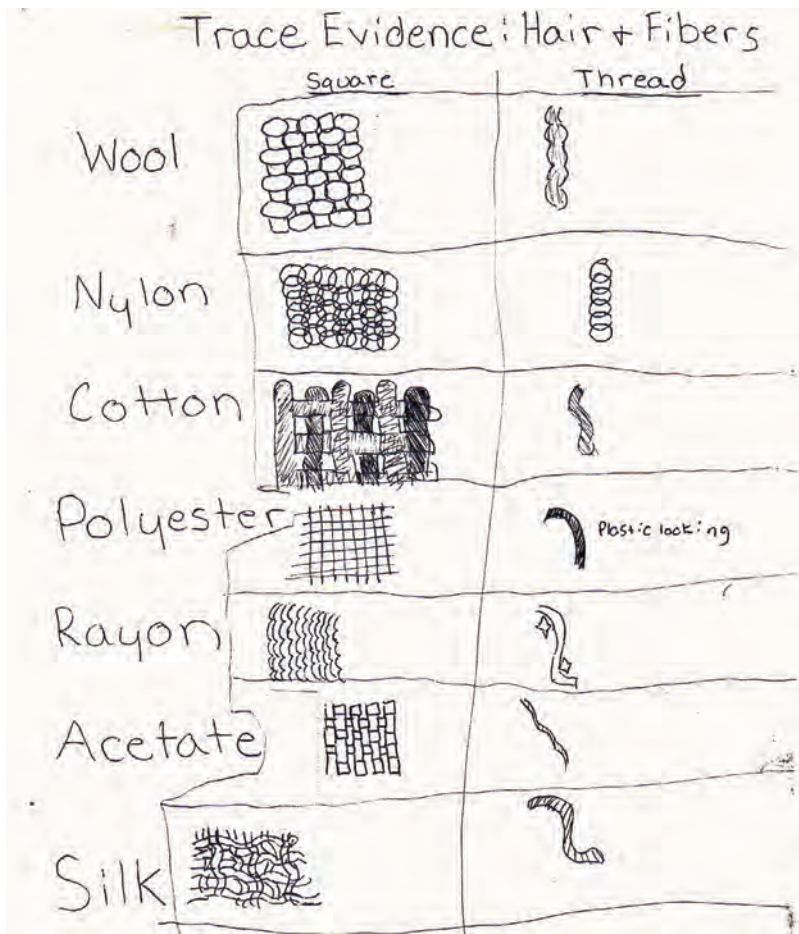 Trace Evidence: Hair + Fibers
Square Thread
Wool
Nylon
Cotton
Polyester Plastic looking
Rayon
Acetate
Silk